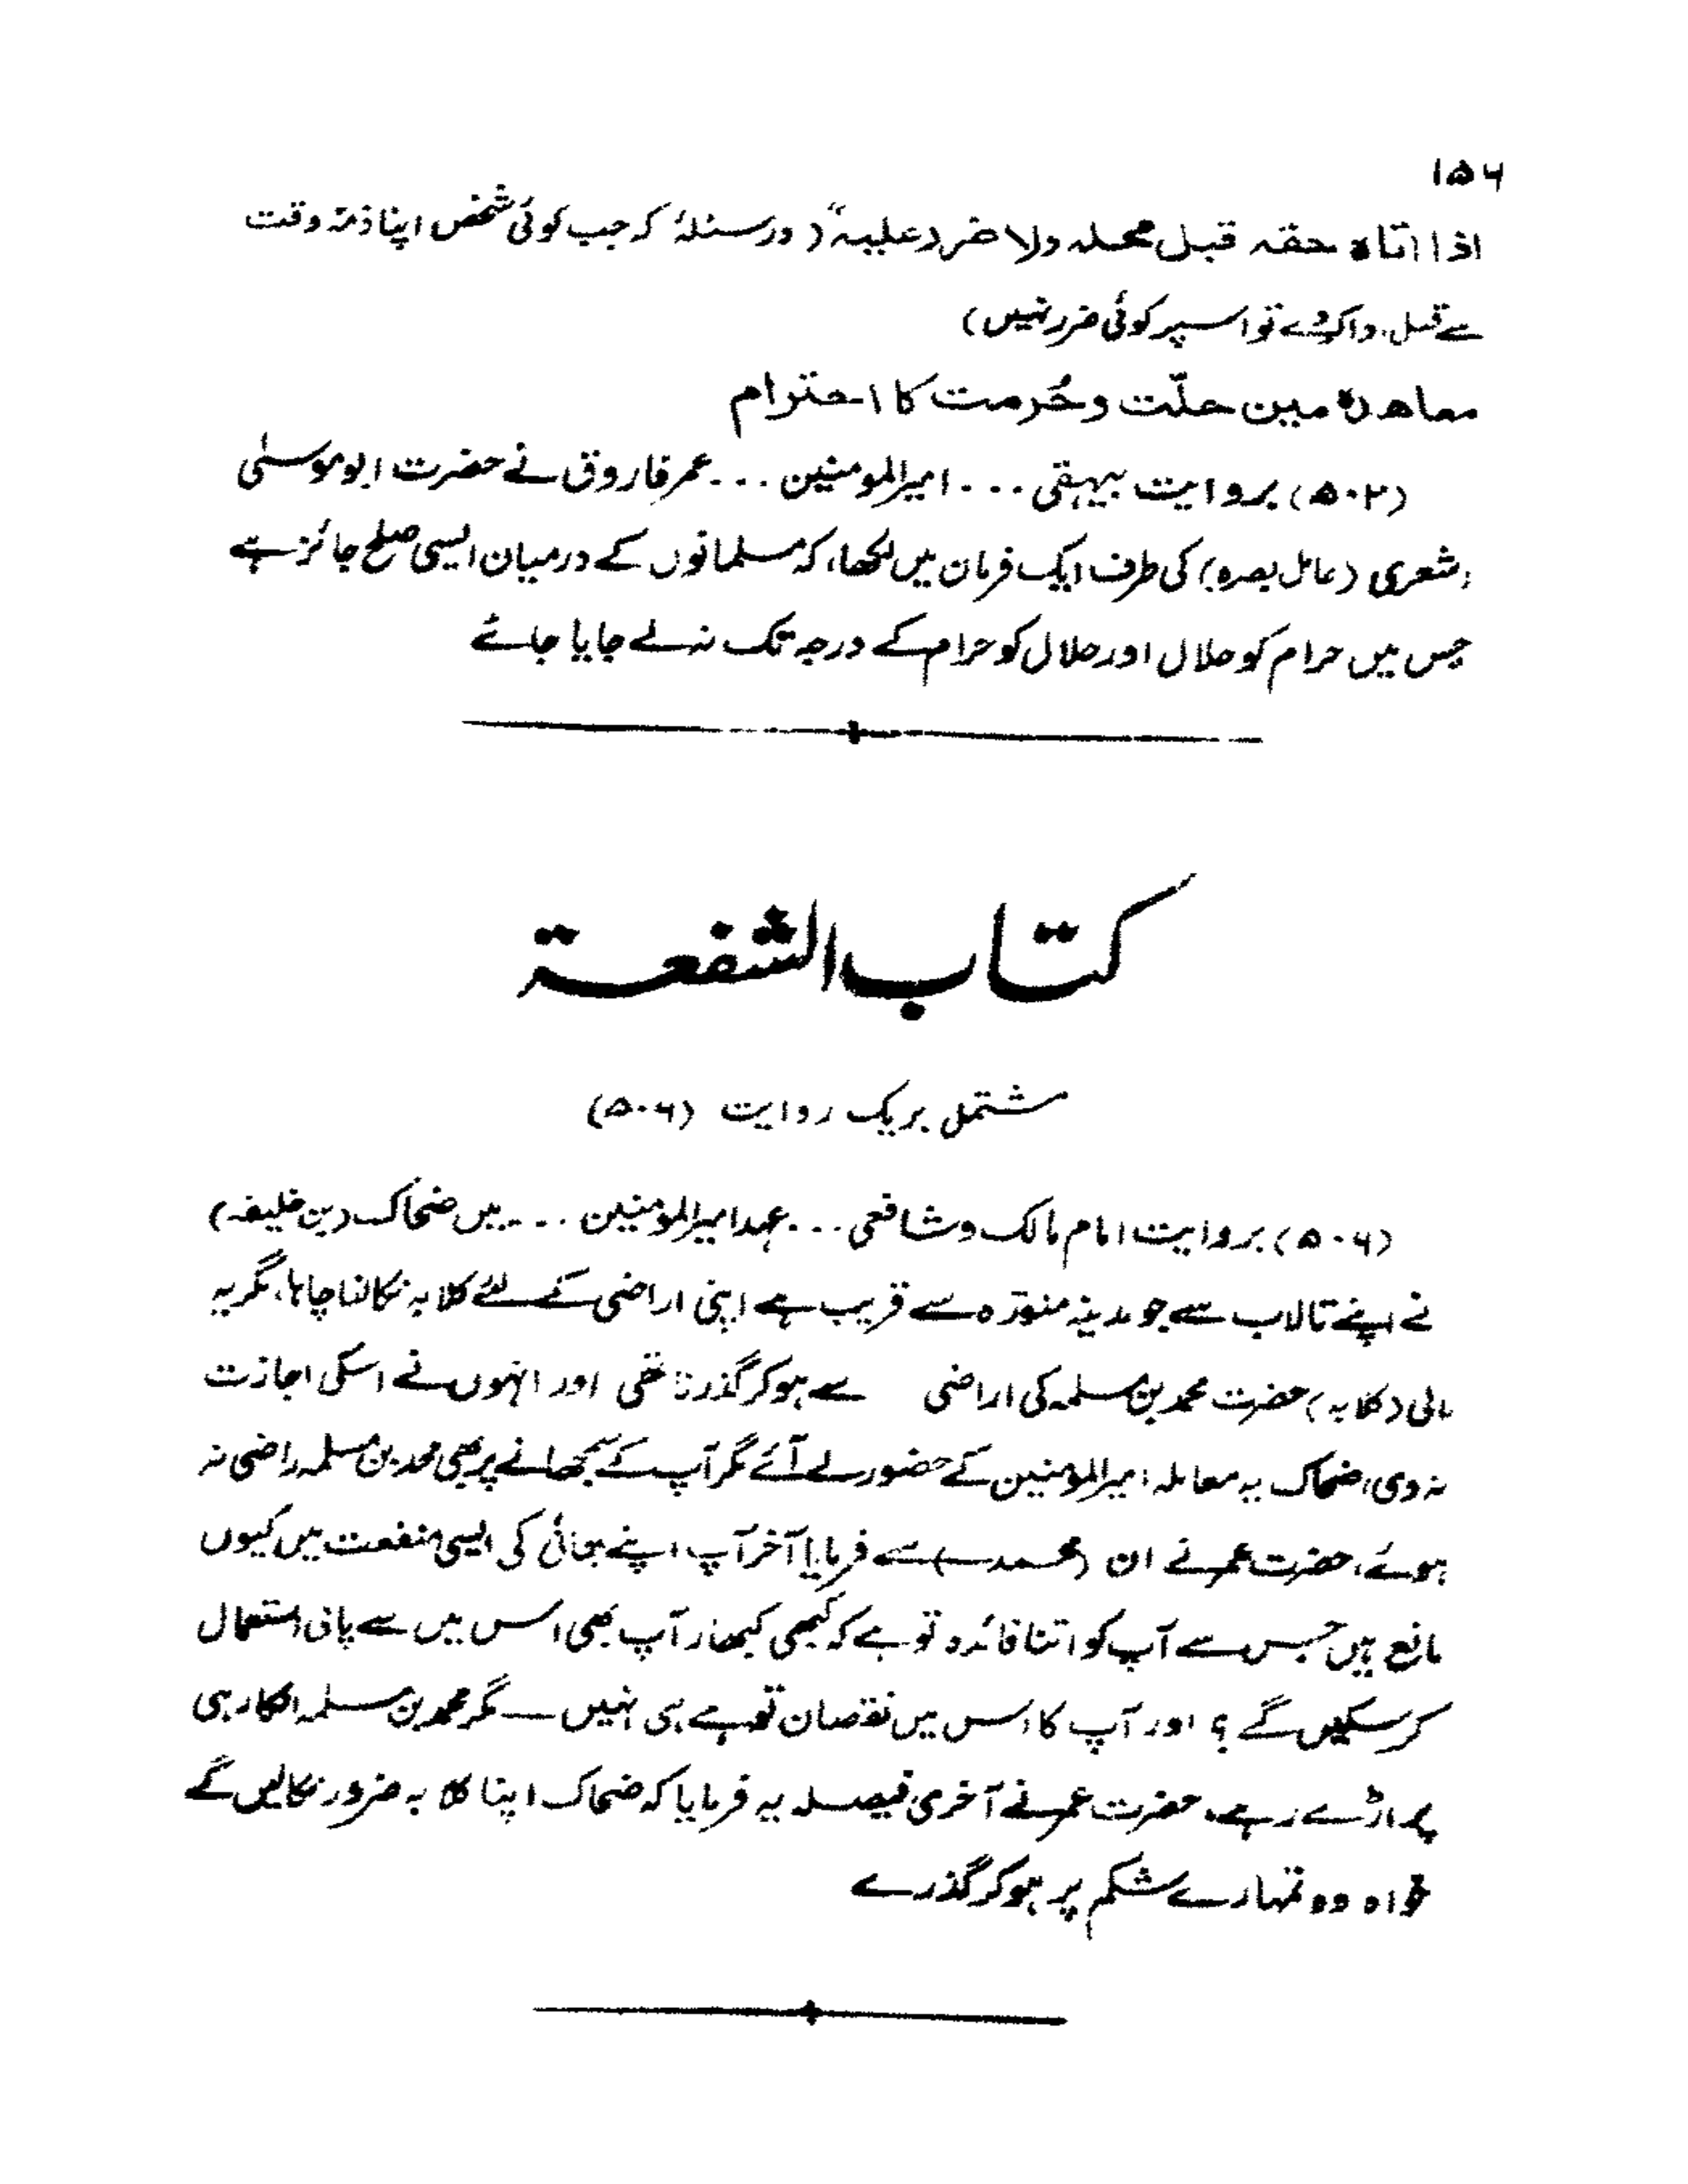 ۱۵۶
اذا اتاہ حقہ قبل محلہ ولا ضرر علیہ" (در مسئلہ کہ جب کوئی شخص اپنا ذمّہ وقت
سے قبل ادا کردے تو اسپر کوئی ضرر نہیں)
معاھدہ مین حلّت وحُرمت کا احترام
(۵۰۲) بروایت بیہقی ... امیرالمومنین ... عمر فاروق نے حضرت ابو موسیٰ
اشعری (عامل بصرہ) کی طرف ایک فرمان میں لکھا، کہ مسلمانوں کے درمیان ایسی صلح جائز ہے
جس میں حرام کو حلال اور حلال کو حرام کے درجہ تک نہ لے جایا جائے
کتاب الشفعۃ
مشتمل بریک روایت (۵۰۶)
(۵۰۶) بروایت امام مالک وشافعی ... عہد امیرالمومنین ... میں ضحاک (بن خلیفہ)
نے اپنے تالاب سے جو مدینہ منورہ سے قریب ہے اپنی اراضی کے لئے کلابہ نکالنا چاہا، مگر یہ
نالی (کلابہ) حضرت محمد بن مسلمہ کی اراضی سے ہوکر گذرنا تھی اور انہوں نے اسکی اجازت
نہ دی، ضحاک یہ معاملہ امیرالمومنین کے حضور لے آئے مگر آپ کے سمجھانے پر بھی محمد بن مسلمہ راضی نہ
ہوئے، حضرت عمر نے ان (محمد) سے فرمایا آخر آپ اپنے بھائی کی ایسی منفعت میں کیوں
مانع ہیں جس سے آپ کو اتنا فائدہ تو ہے کہ کبھی کبھار آپ بھی اس میں سے پانی استعمال
کرسکیں گے؟ اور آپ کا اس میں نقصان تو ہے ہی نہیں — مگر محمد بن مسلمہ انکار ہی
پر اڑے رہے، حضرت عمر نے آخری فیصلہ یہ فرمایا کہ ضحاک اپنا کلابہ ضرور نکالیں گے
خواہ وہ تمہارے شکم پر ہوکر گذرے